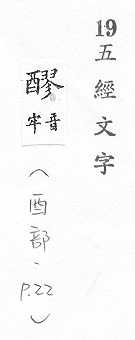 19五經文字
醪
音牢
(酉部、P.22)